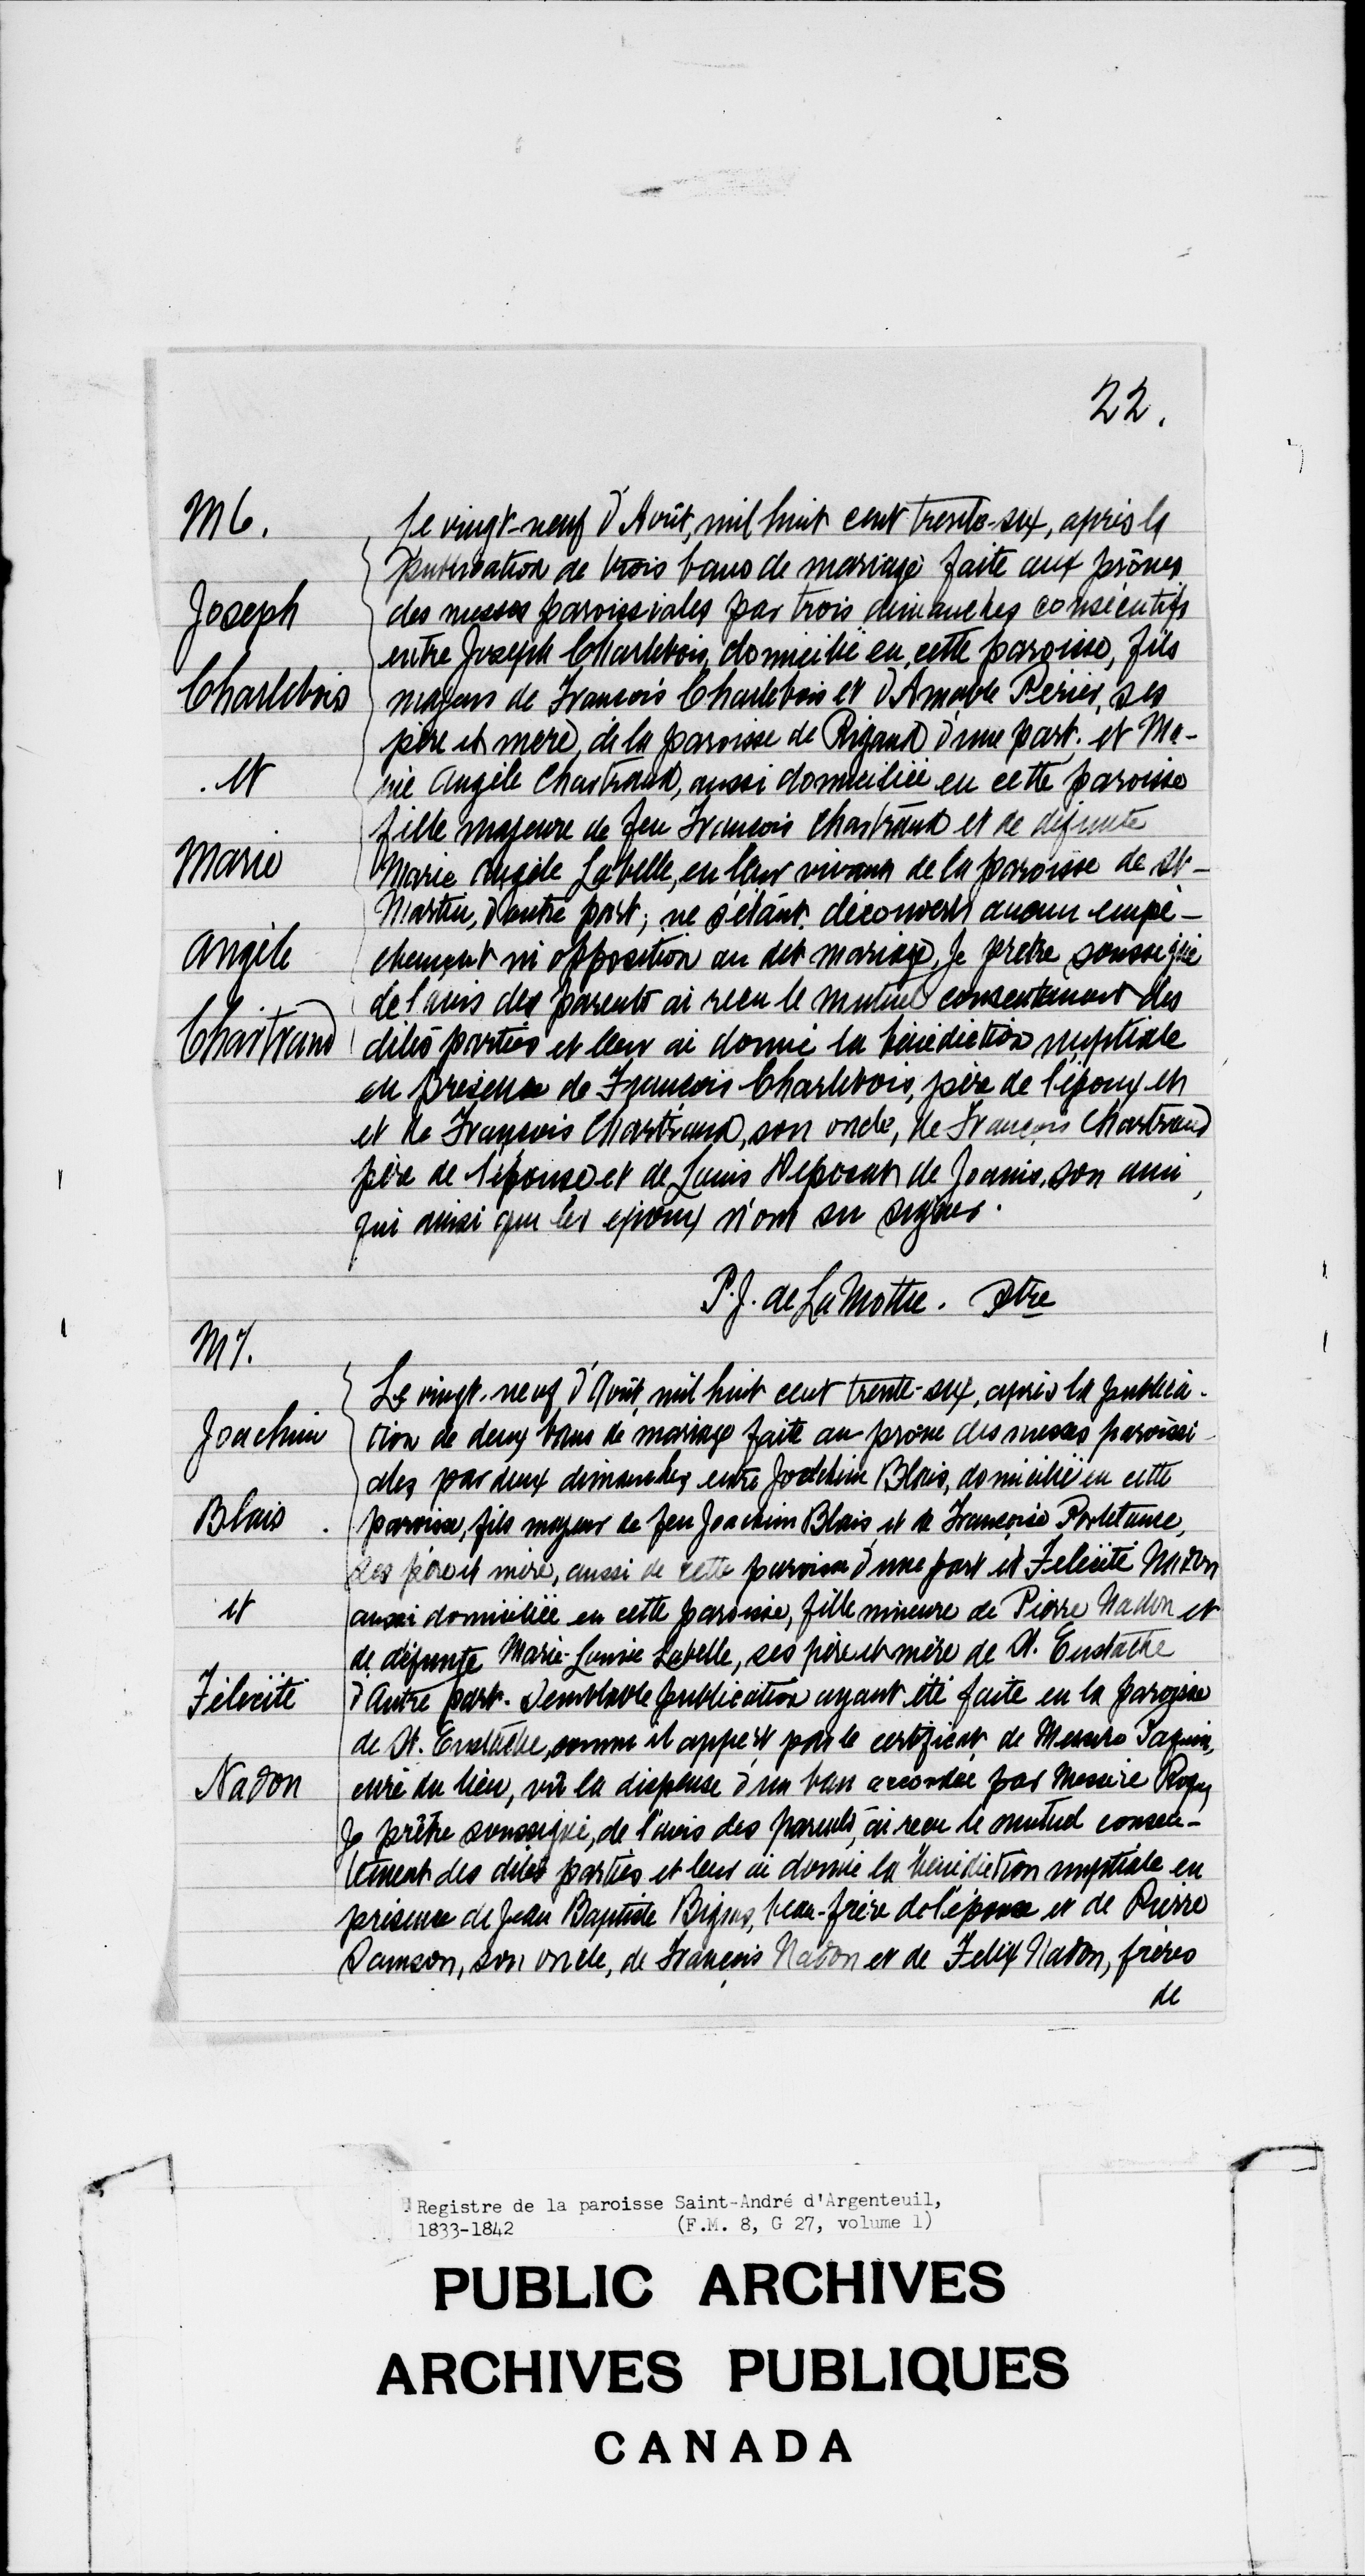 22.
M 6.
Joseph
Charlebois
et
Marie
Angèle
Chartrand
Le vingt-neuf d'Août, mil huit cent trente-six, après la
publication de trois bans de mariage faite aux prônes
des messes paroissiales par trois dimanches consécutifs
entre Joseph Charlebois, domicilié en cette paroisse, fils
majeur de François Charlebois et d'Amable Perier, ses
père et mère, de la paroisse de Rigaud d'une part. et Ma-
rie Angèle Chartrand, aussi domiciliée en cette paroisse
fille majeure de feu François Chartrand et de défunte
Marie Angèle Labelle, en leur vivant de la paroisse de St-
Martin, d'autre part; ne s'étant découvert aucun empê-
chement ni opposition au dit mariage, Je prêtre soussigné
de l'avis des parents ai reçu le mutuel consentement des
dites parties et leur ai donné la bénédiction nuptiale
en présence de François Charlebois, père de l'époux et
et de François Chartrand, son oncle, de François Chartrand
père de l'épouse et de Louis de Joanis, son ami,
qui ainsi que les époux n'ont su signer.
P. J. de LaMothe. Ptre
M 7.
Joachim
Blais
et
Félicité
Nadon
Le vingt-neuf d'Août, mil huit cent trente-six, après la publica-
tion de deux bans de mariage faite au prône des messes paroissi-
ales par deux dimanches entre Joachim Blais, domicilié en cette
paroisse, fils majeur de feu Joachim Blais et de Françoise Portelance,
ses père et mère, aussi de cette paroisse d'une part et Félicité Nadon
aussi domiciliée en cette paroisse, fille mineure de Pierre Nadon et
de défunte Marie-Louise Labelle, ses père et mère de St. Eustache
d'autre part. Semblable publication ayant été faite en la paroisse
de St. Eustache, comme il appert par le certificat de Messire Paquin,
curé du lieu, vû la dispense d'un ban accordée par Messire Roque
Je prêtre soussigné, de l'avis des parents, ai reçu le mutuel consen-
tement des dites parties et leur ai donné la bénédiction nuptiale en
présence de Jean Baptiste Bigras, beau-frère de l'épouse et de Pierre
Samson, son oncle, de François Nadon et de Felix Nadon, frères
de
Registre de la paroisse Saint-André d'Argenteuil,
1833-1842 (F.M. 8, G 27, volume 1)
PUBLIC ARCHIVES
ARCHIVES PUBLIQUES
CANADA